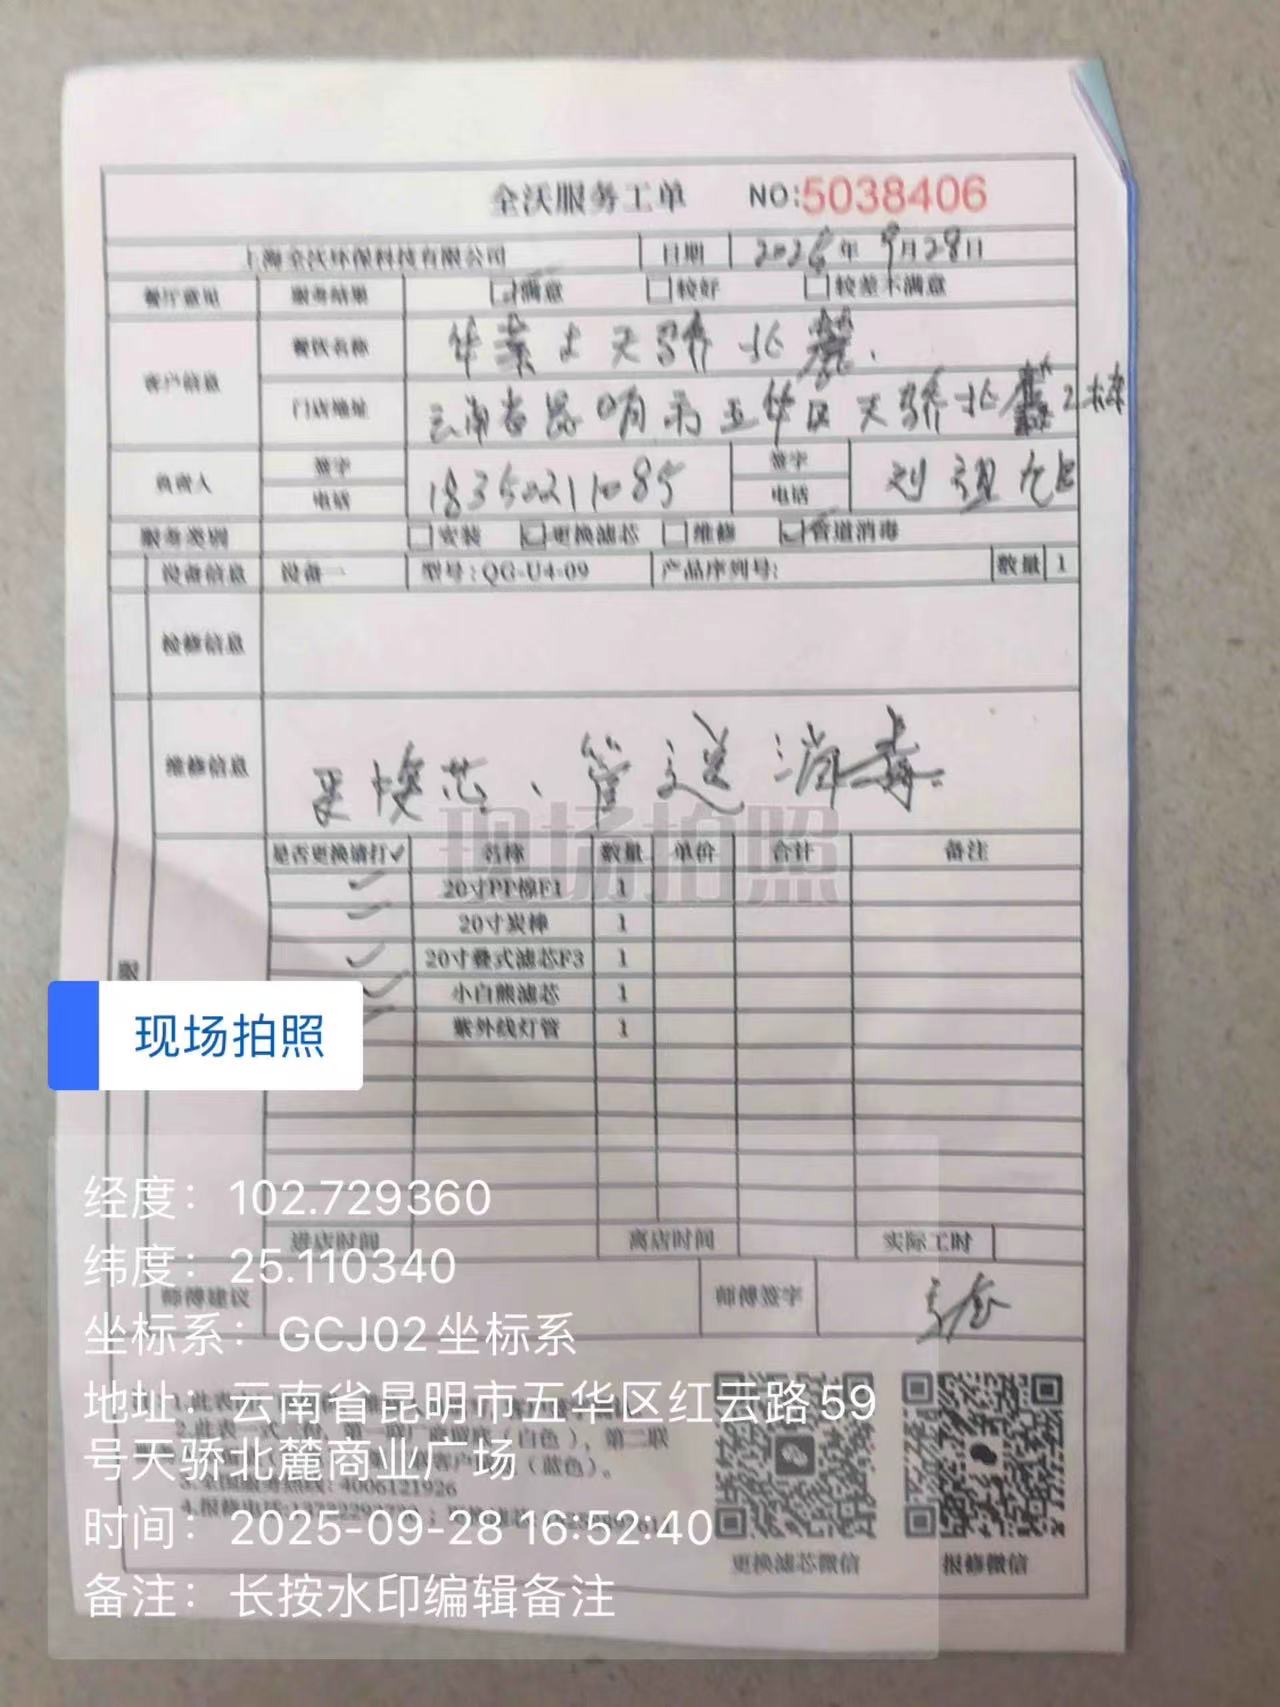 全沃服务工单 NO:5038406
上海全沃环保科技有限公司 日期 2025年9月28日
餐厅意见 服务结果 满意 较好 较差不满意
客户信息 餐饮名称 华莱士天骄北麓.
门店地址 云南省昆明市五华区天骄北麓2栋
负责人 签字 电话 18350211085 签字 电话 刘
服务类别 安装 更换滤芯 维修 管道消毒
设备信息 设备一 型号:QG-U4-09 产品序列号: 数量 1
检修信息
维修信息 更换芯、管道消毒
现场拍照
是否更换请打✓ 名称 数量 单价 合计 备注
✓ 20寸PP棉F1 1
✓ 20寸炭棒 1
✓ 20寸叠式滤芯F3 1
✓ 小白熊滤芯 1
紫外线灯管 1
服
现场拍照
进店时间 离店时间 实际工时
师傅建议 师傅签字
经度：102.729360
纬度：25.110340
坐标系：GCJ02坐标系
地址：云南省昆明市五华区红云路59
号天骄北麓商业广场
时间：2025-09-28 16:52:40
备注：长按水印编辑备注
1.此表
2.此表一式 (白色)，第二联
(蓝色)。
3.全国服务热线: 4006121926
4.报修电话:
更换滤芯微信 报修微信